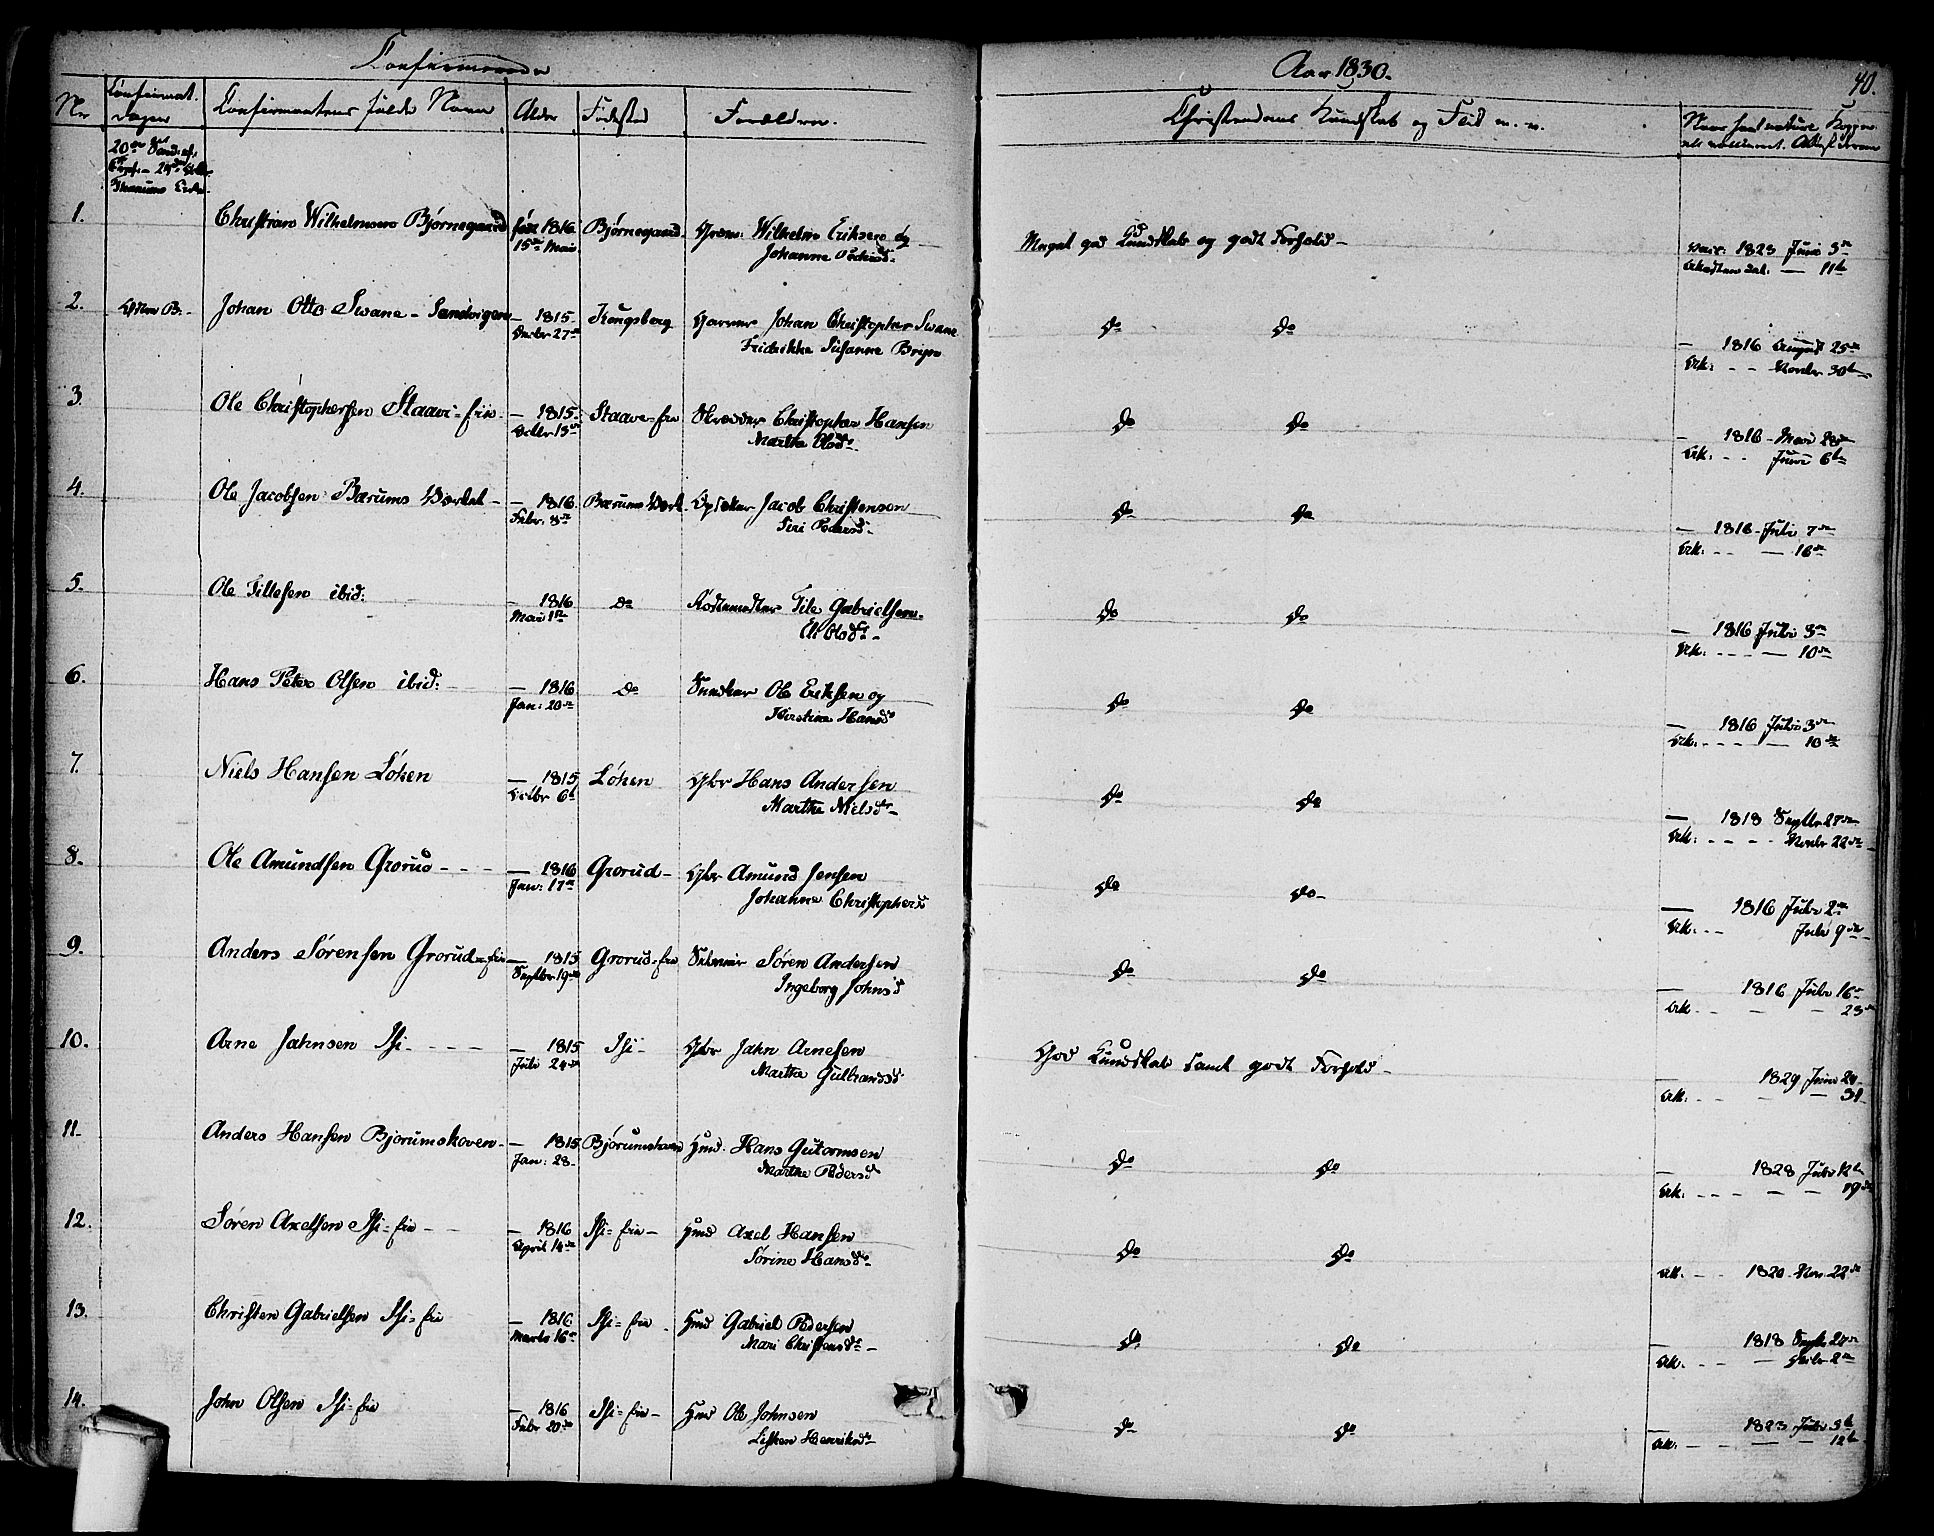 Confirmerede
Aar 1830.
40.
Nr
Confirmat. Dagen
Confirmantens fulde Navn
Alder
Fødested
Forældre.
Christendoms Kundskab og Flid m. v.
Naar havt nature. Kopper
20de Sønd: ef:
1.
Christian Wilhelmsen Bjørnegaard
født 1816
15de Mai.
Bjørnegaard
Wilhelm Eriksen og
Johanne Pedersd.
Meget god Kundskab og godt Forhold
vacc. 1823 Juni 3de
11te
2.
Johan Otto Swane - Sandvigen
1815
Decbr 27de
Kongsberg
Garver Johan Christopher Swane
Fridrikke Susanne
Do Do
1816 August 25de
Att: Novbr 30te
3.
Ole Christophersen Staavi-eie
1815
Octbr 13de
Staavi-eie
Skrædder Christopher Hansen
Marthe Olsd.
Do Do
1816 Mai 28de
Att: Juni 6te
4.
Ole Jacobsen Bærums Værket
1816
Febr. 8de
Bærums Værk
Jacob Christensen
Siri Pedersd.
Do Do
1816 Juli 7de
Att: 16de
5.
Ole Tillesen ibid:
1816
Mai 1ste
Do
Tile Gabrielsen
Eli Olsd.
Do Do
1816 Juli 3de
Att: 10de
6.
Hans Peter Olsen ibid:
1816
Jan: 20de
Do
Snedker Ole Eriksen og
Kirstine Hansd.
Do Do
1816 Juli 3de
Att: 10de
7.
Niels Hansen Løken
1815
Octbr 6te
Løken
Gbr Hans Andersen
Marthe Nielsd.
Do Do
1818 Septbr 27de
Att: Novbr 22de
8.
Ole Amundsen Grorud
1816
Jan: 17de
Grorud
Gbr Amund Jensen
Johanne Christophersd
Do Do
1816 Juli 2de
Att: Juli 9de
9.
Anders Sørensen Grorud-eie
1815
Septbr 19de
Grorud-eie
Søren Andersen
Ingeborg Johnsd
Do Do
1816 Juli 16de
Att. 23de
10.
Arne Jahnsen Isi
1815
Juli 24de
Isi
Gbr Jahn Arnesen
Marthe Gulbrandsd
God Kundskab samt godt Forhold
1829 Juni 24
Att: 31
11.
Anders Hansen Bjorumshoven
1815
Jan: 28
Bjørumshoven
Hmd. Hans Gutormsen
Marthe Pedersd
Do Do
1828 Juli 12te
Att: 19de
12.
Søren Axelsen Isi-eie
1816
April 14de
Isi-eie
Hmd Axel Hansen
Sørine Hansd.
Do Do
Att. 1820 Nov. 22de
13.
Christen Gabrielsen Isi-eie
1816
Marts 16de
Isi-eie
Hmd Gabriel Pedersen
Mari Christensd.
Do Do
1818 Septbr 27de
Att. Octbr 2de
14.
John Olsen Isi-eie
1816
Febr 20de
Isi-eie
Hmd Ole Johnsen
Lisken Henriksd.
Do Do
1823 Juli 5te
Att: 12te